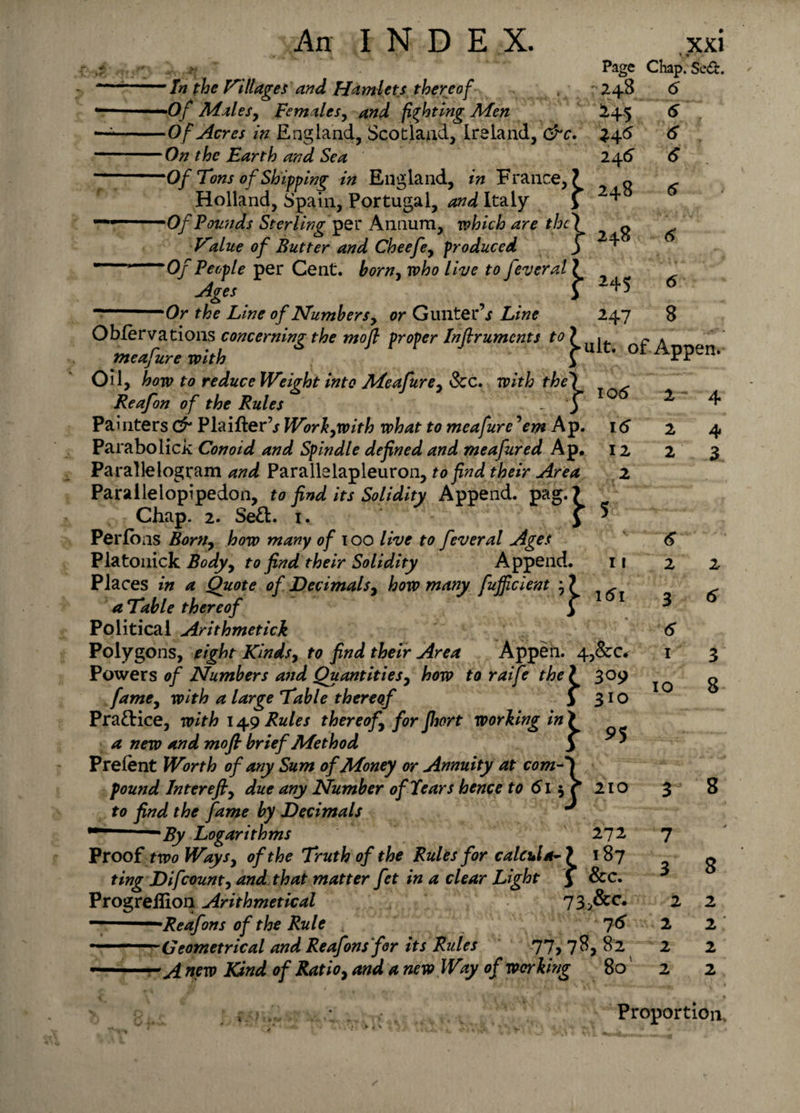 An INDEX. xxi
Page Chap. Sect.
——In the Villages and Hamlets thereof 248 6
——Of Males, Females, and fighting Men 245 6
——Of Acres in England, Scotland, Ireland, &c. 246 6
——On the Earth and Sea 246 6
——Of Tons of Shipping in England, in France,
Holland, Spain, Portugal, and Italy } 248 6
——Of Pounds Sterling per Annum, which are the
Value of Butter and Cheefe, produced } 248 6
——Of People per Cent. born, who live to feveral
Ages } 245 6
——Or the Line of Numbers, or Gunter's Line 247 8
Obfervations concerning the moft proper Inftruments to
meafure with } ult. of Appen.
Oil, how to reduce Weight into Meafure, &c. with the
Reafon of the Rules } 106 2 4
Painters & Plaifter's Work,with what to meafure 'em Ap. 16 2 4
Parabolick Conoid and Spindle defined and meafured Ap. 12 2 3
Parallelogram and Parallelapleuron, to find their Area 2
Parallelopipedon, to find its Solidity Append. pag.
Chap. 2. Sect. 1. } 5
Perfons Born, how many of 100 live to feveral Ages 6
Platonick Body, to find their Solidity Append. 11 2 2
Places in a Quote of Decimals, how many fufficient ;
a Table thereof } 161 3 6
Political Arithmetick 6
Polygons, eight Kinds, to find their Area Appen. 4,&c. 1 3
Powers of Numbers and Quantities, how to raife the } 309
fame, with a large Table thereof } 310 10 8
Practice, with 149 Rules thereof, for fhort working in
a new and moft brief Method } 95
Prefent Worth of any Sum of Money or Annuity at com-
pound Intereft, due any Number of Years hence to 61 ; } 210 3 8
to find the fame by Decimals
——By Logarithms 272 7
Proof two Ways, of the Truth of the Rules for calcula- } 187
ting Difcount, and that matter fet in a clear Light } &c. 3 8
Progreffion Arithmetical 73,&c. 2 2
——Reafons of the Rule 76 2 2
——Geometrical and Reafons for its Rules 77, 78, 82 2 2
——A new Kind of Ratio, and a new Way of working 80 2 2
Proportion